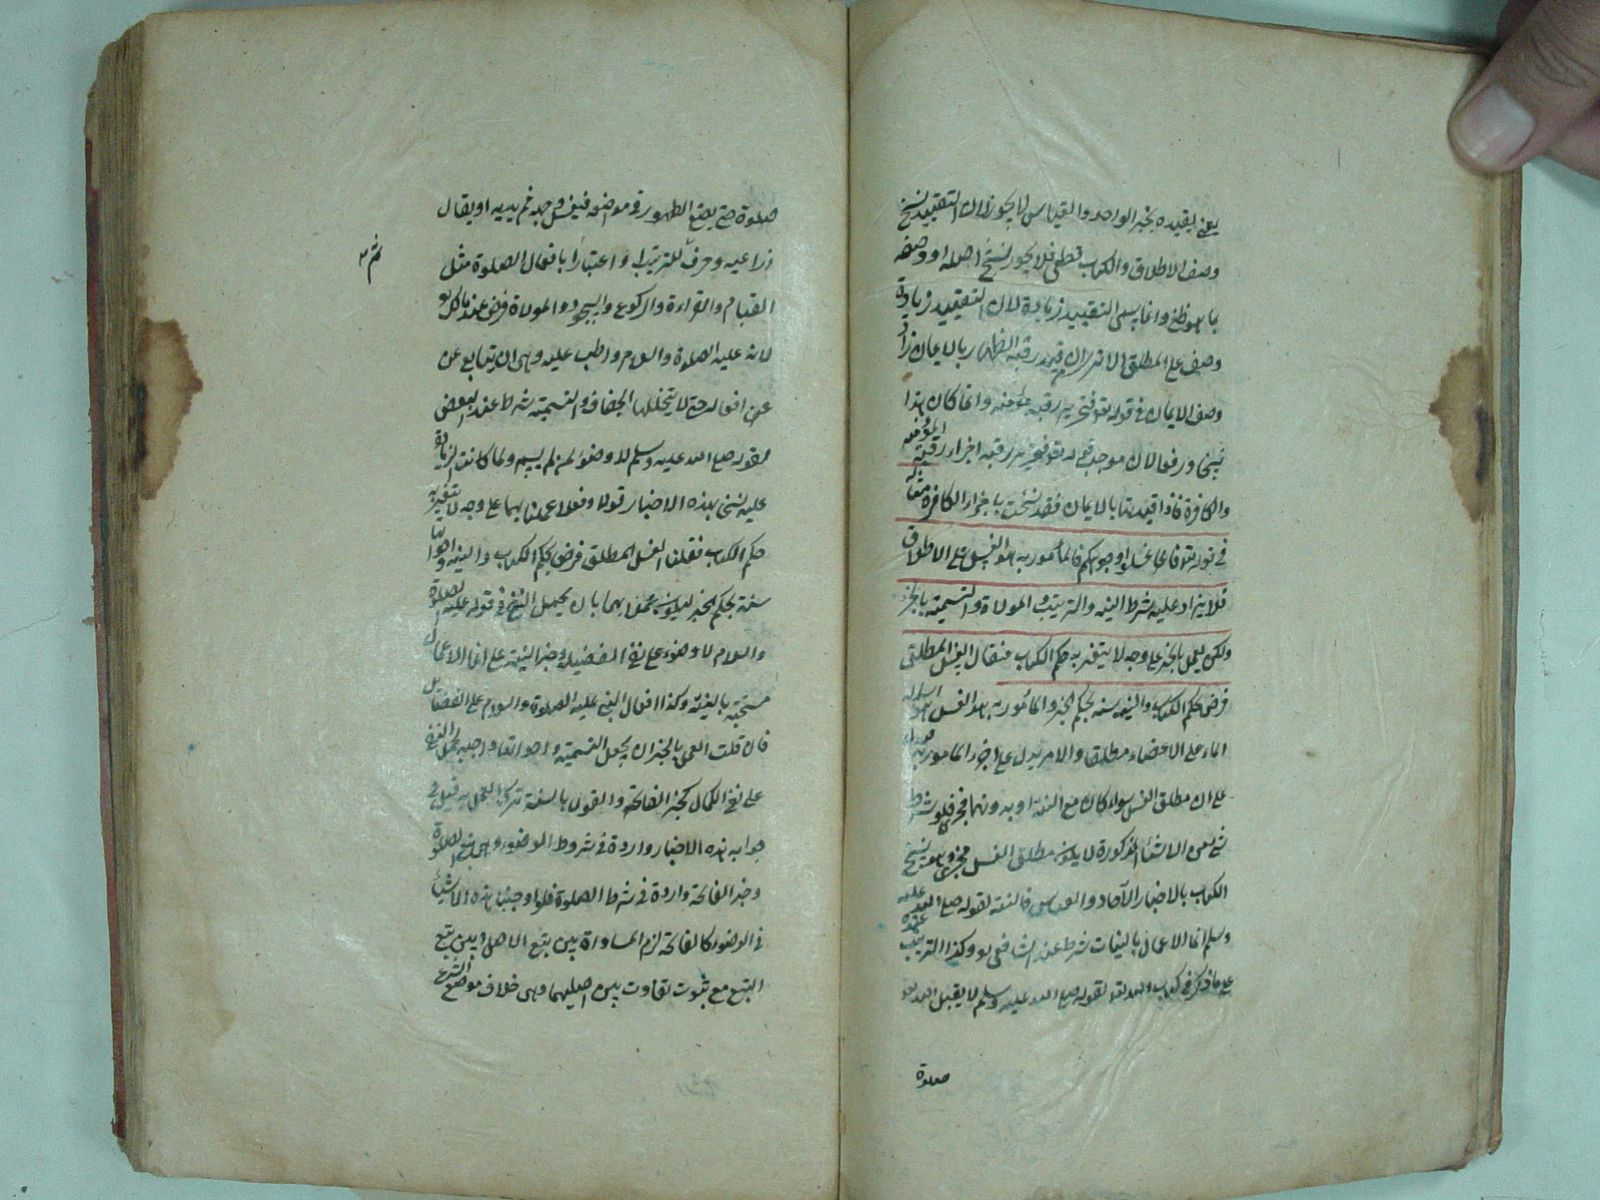 يعني تقييده بخبر الواحد والقياس لا يجوز لان التقييد نسخ
وصف الاطلاق والكتاب قطعي فلا يجوز نسخ اصله او وصفه
بما هو ظني وانما يسمى التقييد زيادة لان التقييد زيادة
وصف على المطلق الا ترى ان قيد رقبة الظهار بالايمان زاد
وصف الايمان في قوله تع فتحرير رقبة مؤمنة وانما كان هذا
نسخا ورفعا لان موجب قوله تع فتحرير رقبة اجزاء رقبة المؤمنة
والكافرة فاذا قيدتها بالايمان فقد نسخت باجزاء الكافرة مثاله
في قوله تع فاغسلوا وجوهكم فالمأمور به هو الغسل على الاطلاق
فلا يزاد عليه شرط النية والترتيب والموالاة والتسمية بالخبر
ولكن يعمل بالخبر على وجه لا يتغير به حكم الكتاب فيقال الغسل المطلق
فرض بحكم الكتاب والنية سنة بحكم الخبر والمأمور به هو الغسل اسالة
الماء على الاعضاء مطلقا والامر يدل على اجزاء المامور به
على ان مطلق الغسل سواء كان مع النية او بدونها مجزئ فلو شرط
شئ من الاشياء المذكورة لا يكون مطلق الغسل مجزئ وهو نسخ
الكتاب بالاخبار الآحاد والقياس فالنية لقوله صلى الله عليه
وسلم انما الاعمال بالنيات شرط عند الشافعي وكذا الترتيب عنده
على ما ذكر في كتاب الله تع لقوله صلى الله عليه وسلم لا يقبل الله تع
صلوة
صلوة حتى يضع الطهور في مواضعه فيغسل وجهه ثم يديه او يقال
ذراعيه وحرف ثم للترتيب واعتبارا بافعال الصلوة مثل
القيام والقراءة والركوع والسجود والموالاة فرض عند مالك
لانه عليه الصلوة والسلام واظب عليه وهى ان يتابع عن
عن افعاله حتى لا يتخللها الجفاف والتسمية شرط عند البعض
لقوله صلى الله عليه وسلم لا وضوء لمن لم يسم ولما كانت الزيادة
عليه نسخا بهذه الاخبار قولا وفعلا عملنا بهما على وجه لا يتغير به
حكم الكتاب فقلنا الغسل المطلق فرض بحكم الكتاب والنية واخواتها
سنة بحكم الخبر ليكون عملا بهما بان يحمل النفي في قوله عليه الصلوة
والسلام لا وضوء على نفي الفضيلة وخبر النية على انما الاعمال
مستحبة بالنية وكذا افعال النبي عليه الصلوة والسلام على الفضائل
فان قلت العمل بالخبر ان يجعل التسمية واخواتها واجبة بحمل النفي
على نفي الكمال كخبر الفاتحة والقول بالسنة ترك العمل به قيل في
جوابه هذه الاخبار واردة في شروط الوضوء وهى تبع الصلوة
وخبر الفاتحة واردة في شرط الصلوة فلو اوجبنا هذه الاشياء
في الوضوء كالفاتحة لزم المساواة بين تبع الاصل وبين تبع
التبع مع ثبوت تفاوت بين اصليهما وهى خلاف موضع الشرع